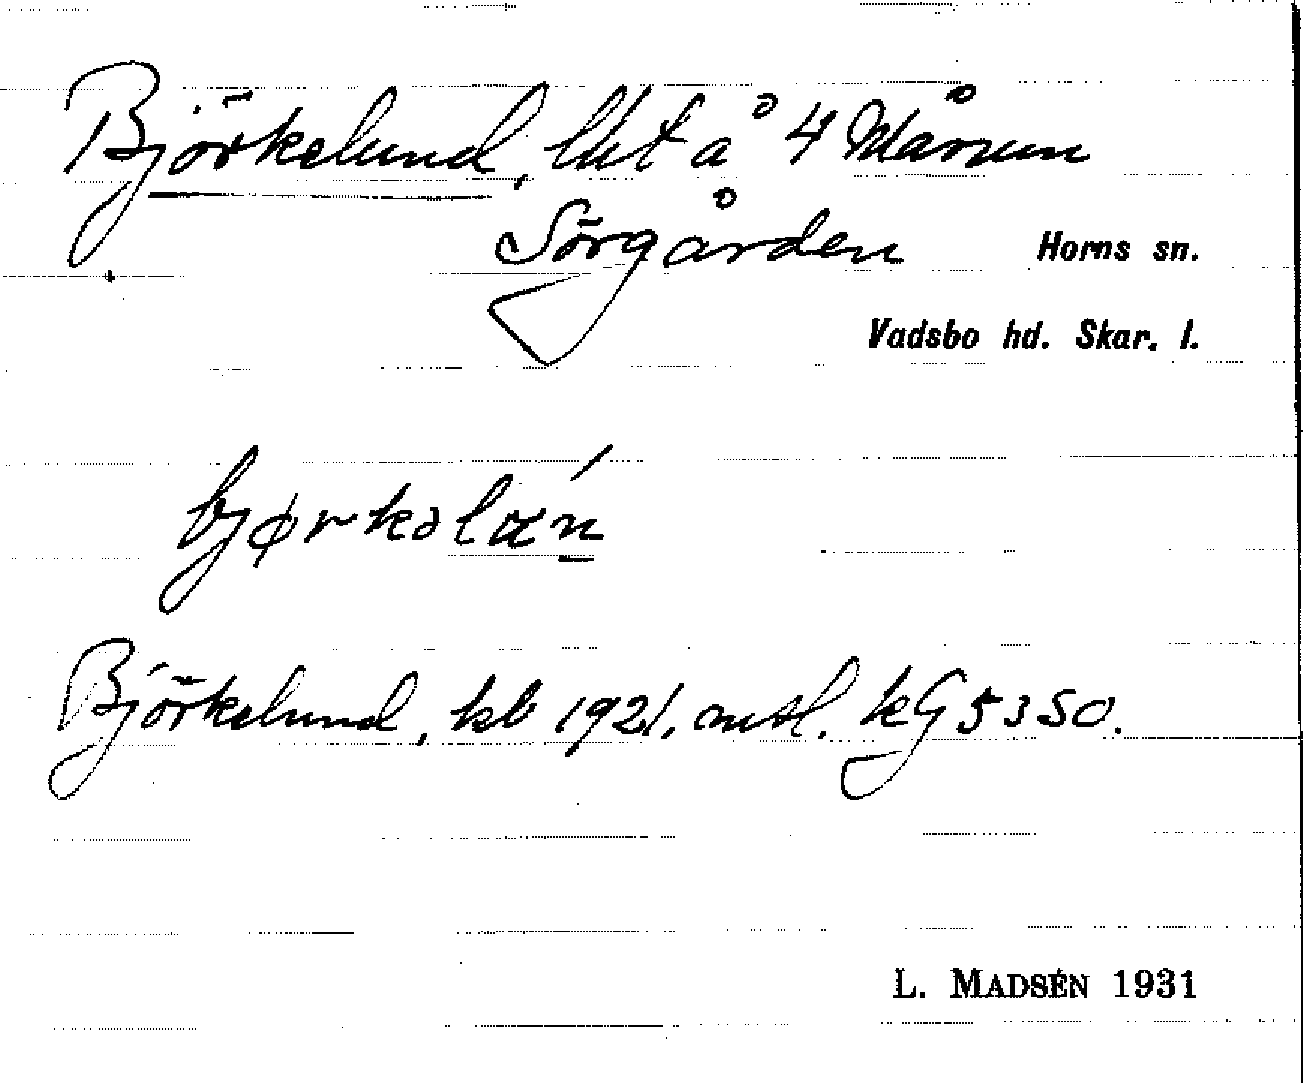 Björkelund, lht å 4 Mårum
Sörgården Horns sn.
Vadsbo hd. Skar. l.
bjørkəlαń
Björkelund, kb 1921, mtl. kG 5350.
L. MADSÉN 1931